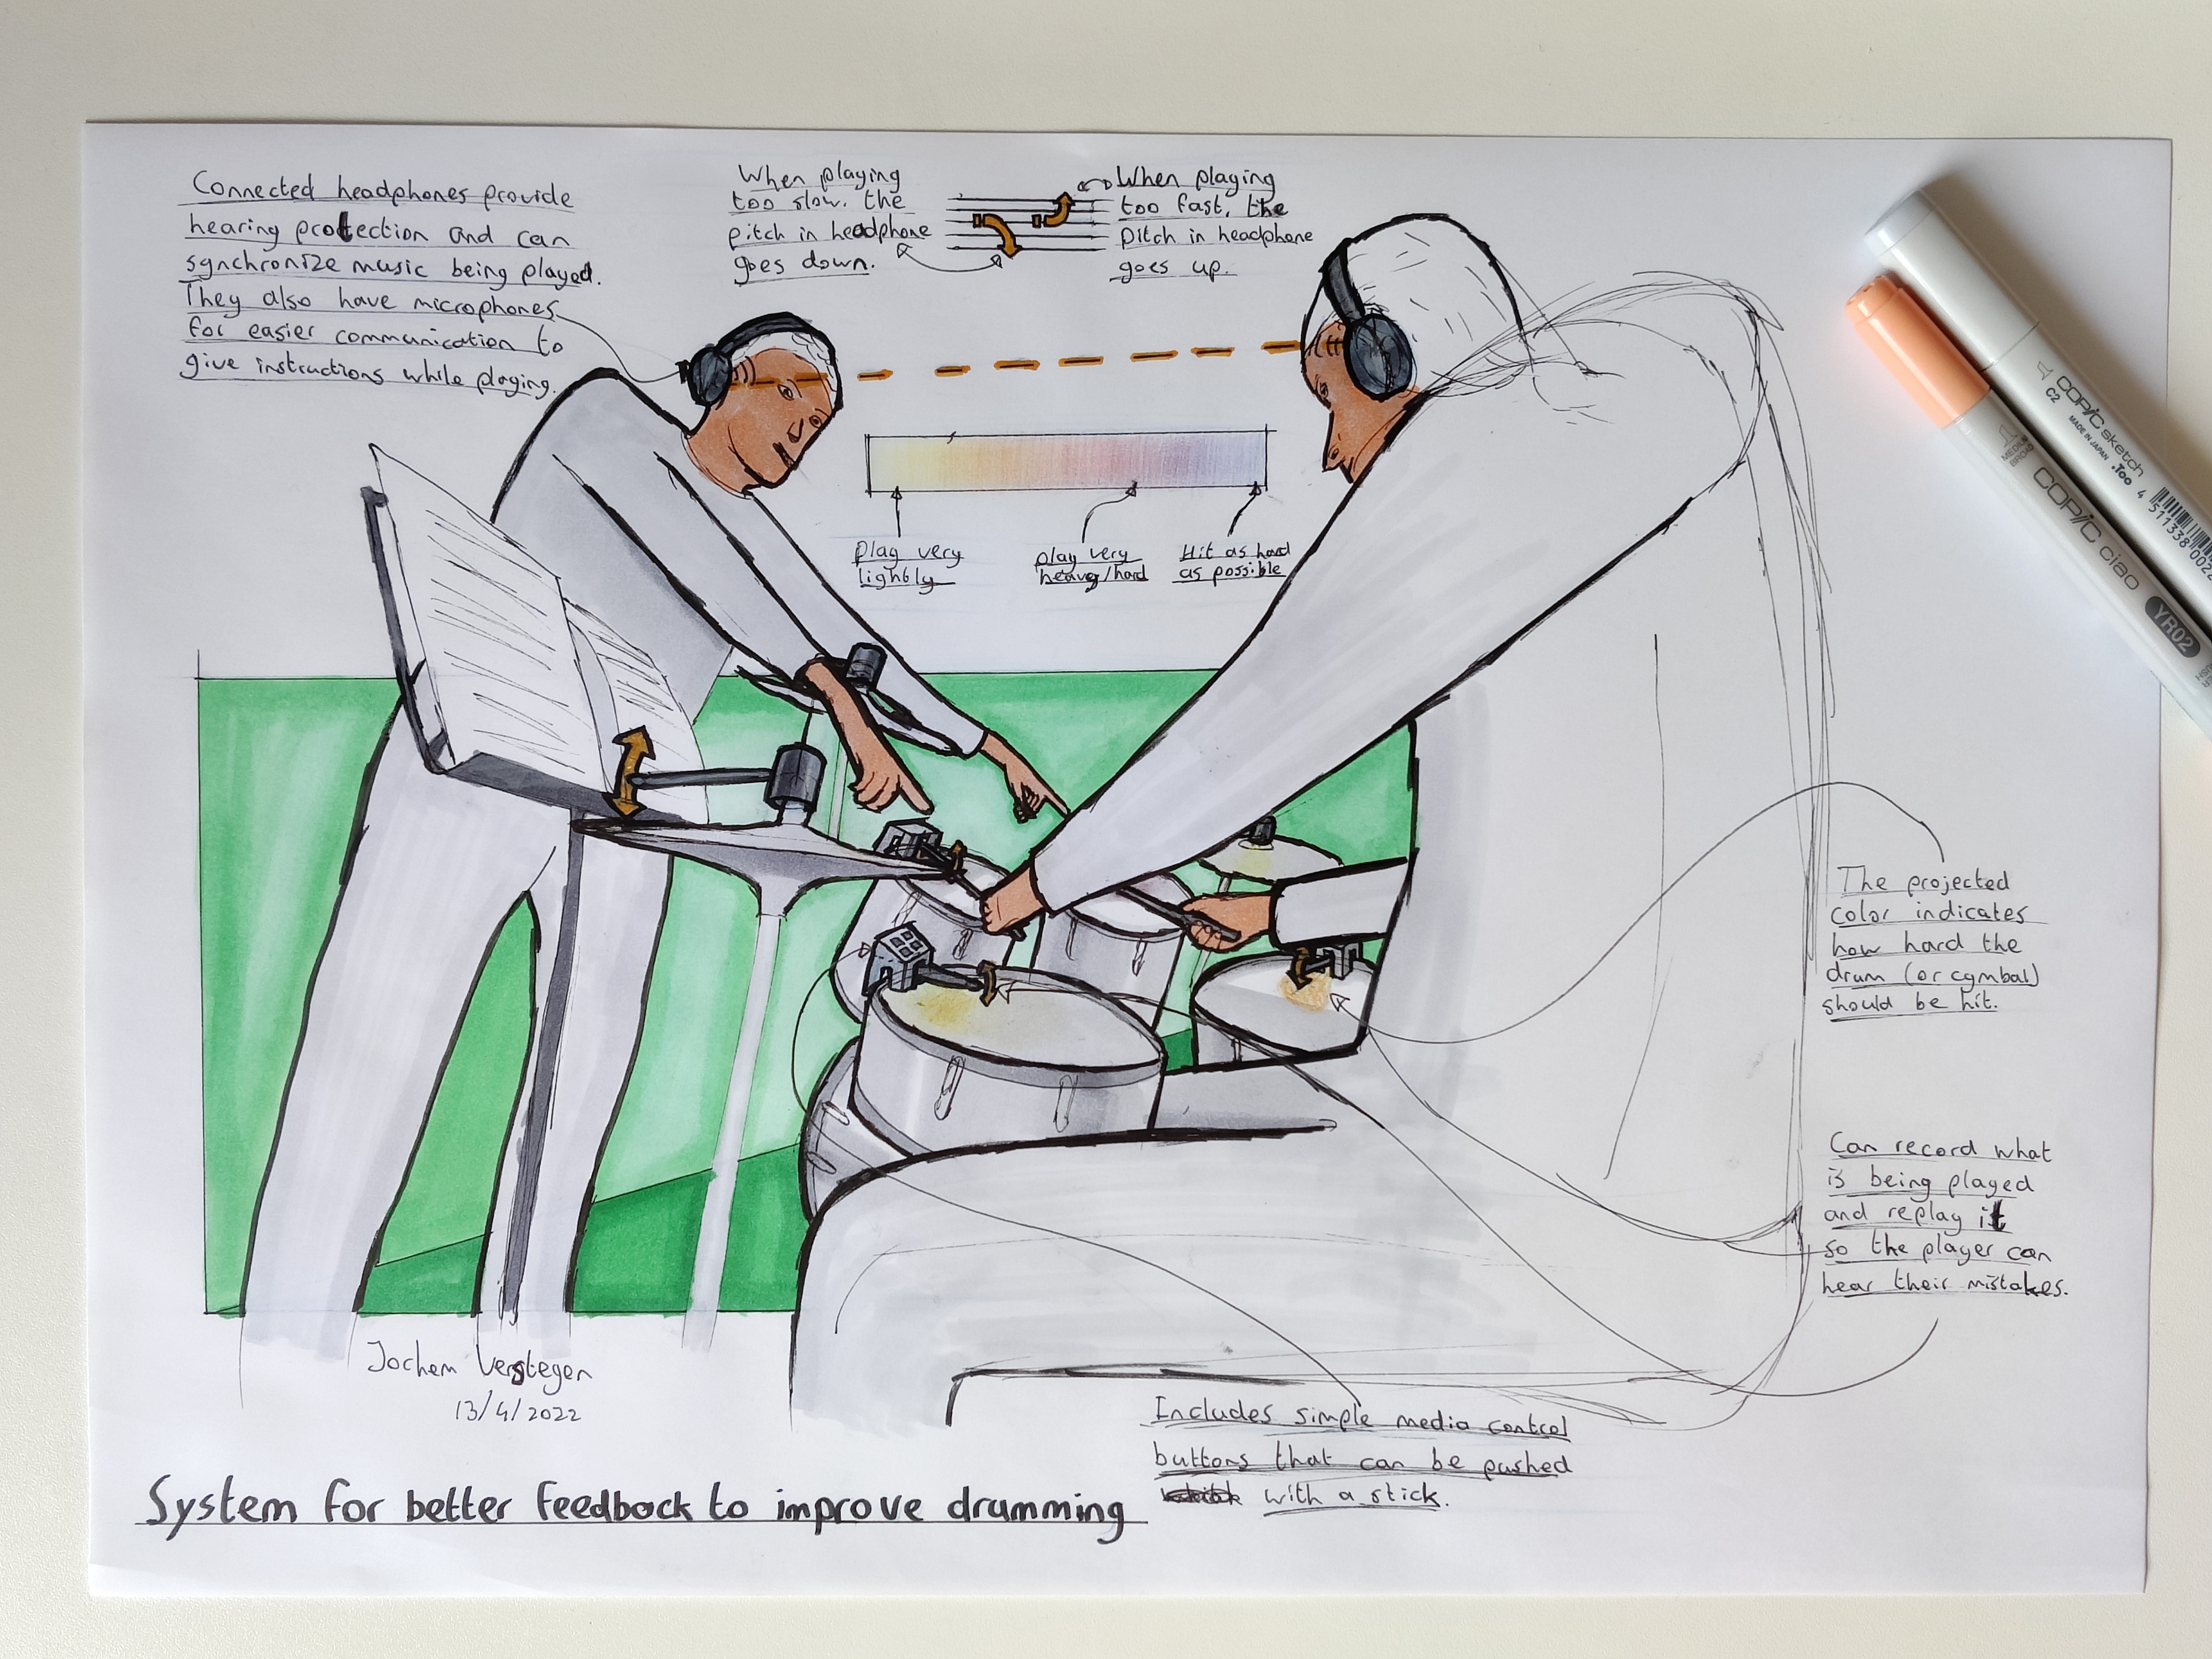 Connected headphones provide
hearing protection and can
synchronize music being played.
They also have microphones
for easier communication to
give instructions while playing.
When playing
too slow, the
pitch in headphone
goes down.
When playing
too fast, the
pitch in headphone
goes up.
Play very
lightly
play very
heavy/hard
Hit as hard
as possible
The projected
color indicates
how hard the
drum (or cymbal)
should be hit.
Can record what
is being played
and replay it
so the player can
hear their mistakes.
Includes simple media control
buttons that can be pushed
with a stick.
Jochem Verstegen
13/4/2022
System for better feedback to improve drumming
C2
COPIC sketch
MADE IN JAPAN
.Too
COPIC ciao
YR02